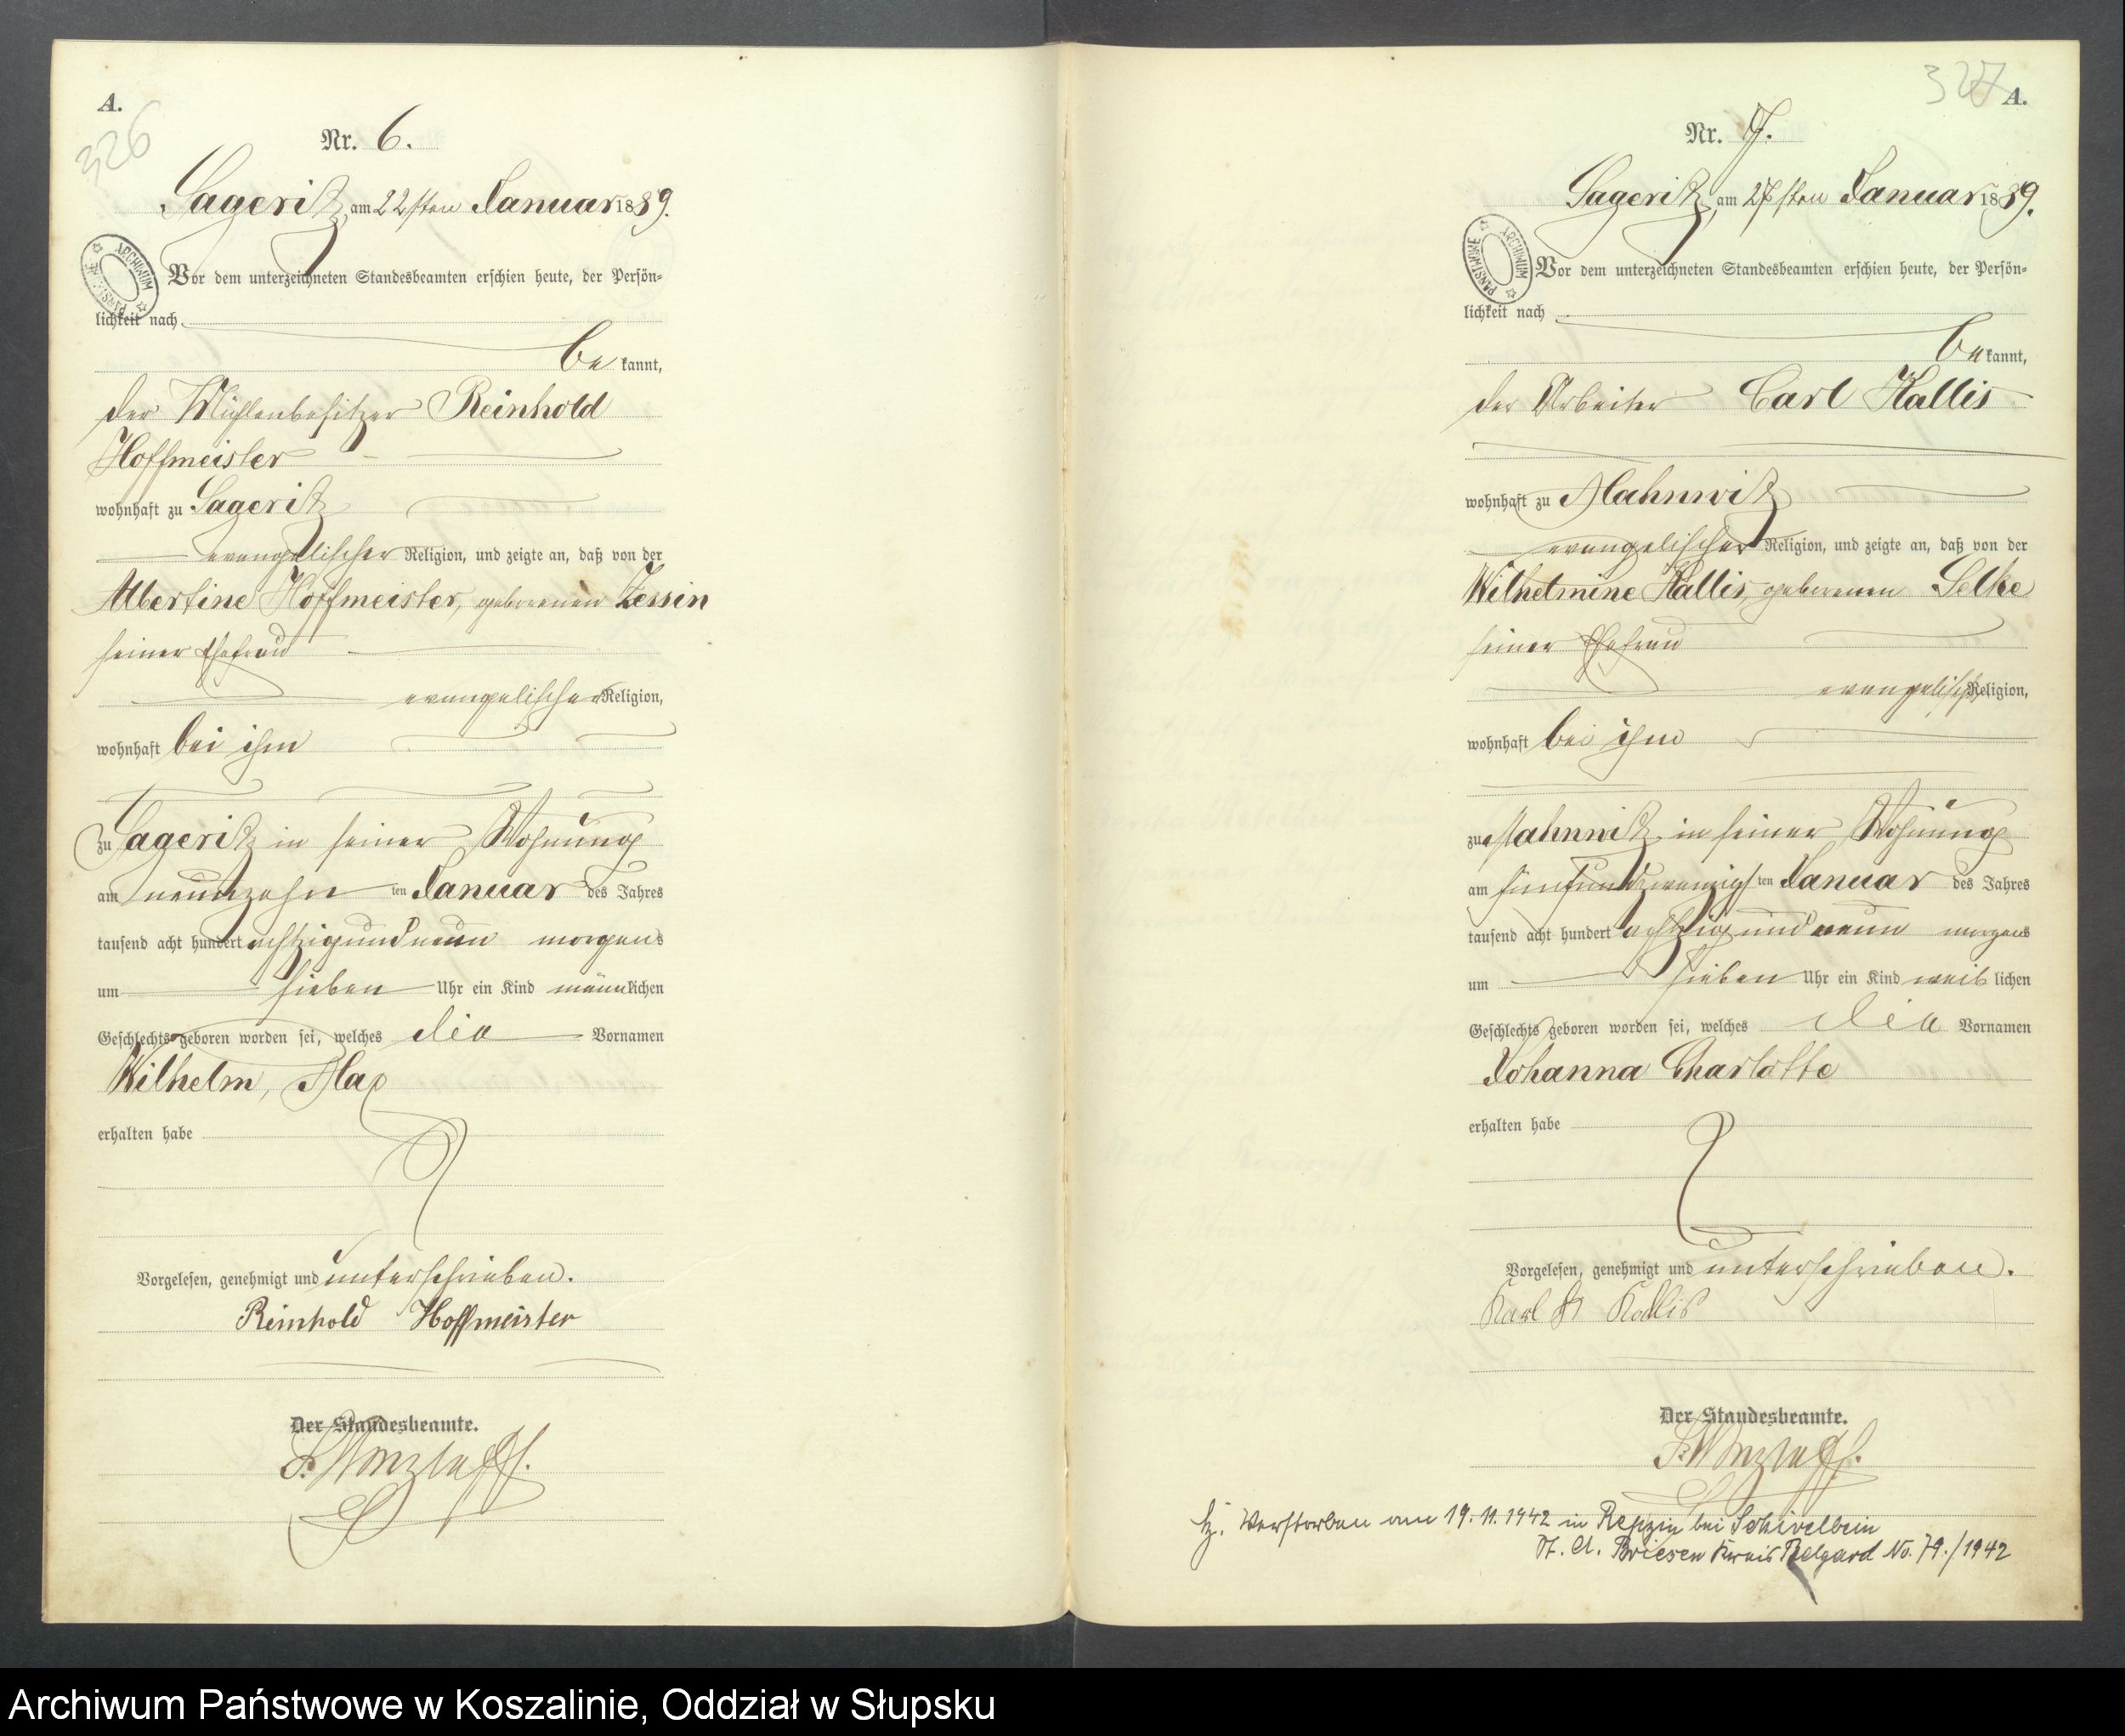 A.
326
Nr. 6.
Sageritz, am 22sten Januar 1889.
ARCHIWUM PAŃSTWOWE
Vor dem unterzeichneten Standesbeamten erschien heute, der Persön-
lichkeit nach
be kannt,
der Mühlenbesitzer Reinhold
Hoffmeister
wohnhaft zu Sageritz
evangelischer Religion, und zeigte an, daß von der
Albertine Hoffmeister, geborenen Zessin
seiner Ehefrau
evangelischer Religion,
wohnhaft bei ihm
zu Sageritz in seiner Wohnung
am neunzehn ten Januar des Jahres
tausend acht hundert achtzig und neun morgens
um sieben Uhr ein Kind männlichen
Geschlechts geboren worden sei, welches die Vornamen
Wilhelm, Max
erhalten habe
Vorgelesen, genehmigt und unterschrieben.
Reinhold Hoffmeister
Der Standesbeamte.
327
A.
Nr. 7.
Sageritz, am 27sten Januar 1889.
ARCHIWUM PAŃSTWOWE
Vor dem unterzeichneten Standesbeamten erschien heute, der Persön-
lichkeit nach
be kannt,
der Arbeiter Carl Kallis
wohnhaft zu Mahnwitz
evangelischer Religion, und zeigte an, daß von der
Wilhelmine Kallis, geborenen Selke
seiner Ehefrau
evangelischer Religion,
wohnhaft bei ihm
zu Mahnwitz in seiner Wohnung
am fünfundzwanzigsten Januar des Jahres
tausend acht hundert achtzig und neun morgens
um sieben Uhr ein Kind weiblichen
Geschlechts geboren worden sei, welches die Vornamen
Johanna Charlotte
erhalten habe
Vorgelesen, genehmigt und unterschrieben.
Karl Kallis
Der Standesbeamte.
Verstorben am 19.11.1942 in Repzin bei Schivelbein
St. A. Briesen Kreis Belgard No. 79./1942
Archiwum Państwowe w Koszalinie, Oddział w Słupsku